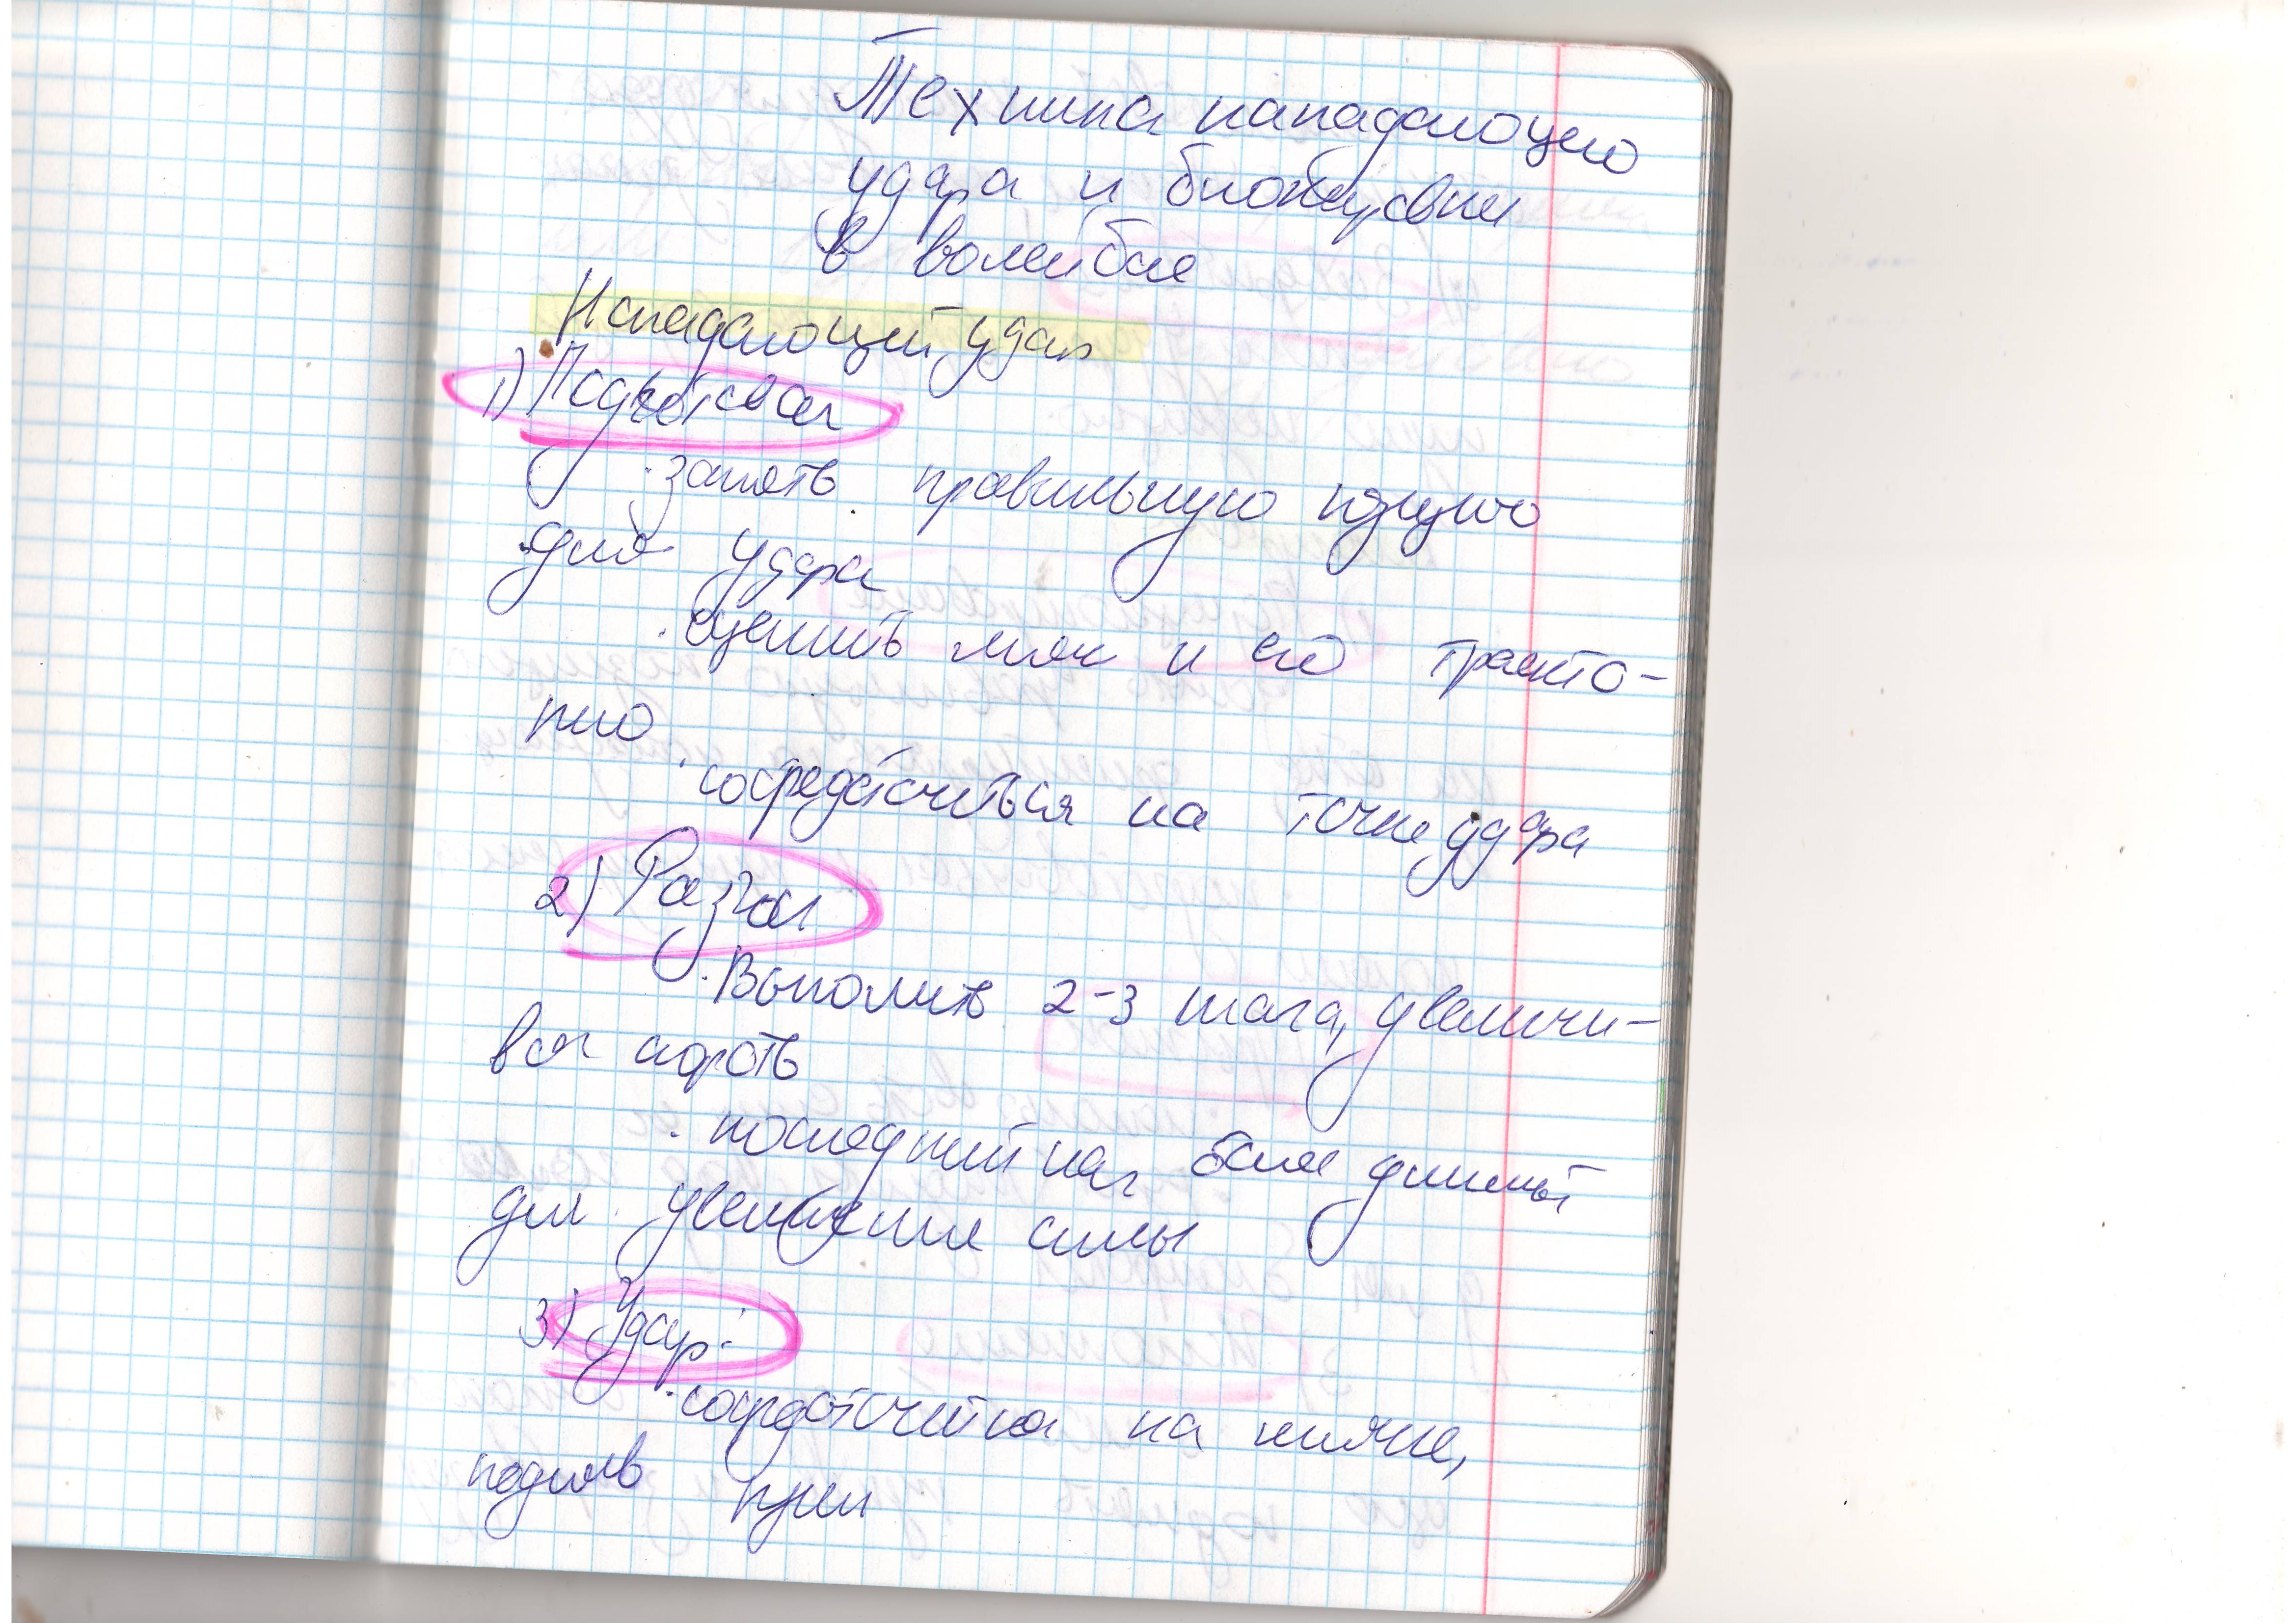 Техника нападающего
удара и блокировки
в волейболе
Нападающий удар
1) Подготовка
· занять правильную позицию
для удара
· оценить мяч и его траекто-
рию
· сосредоточиться на точке удара
2) Разгон
· Выполнить 2-3 шага, увеличи-
вая скорость
· последний шаг более длинный
для увеличения силы
3) Удар:
· сосредоточится на мяче,
подняв руки